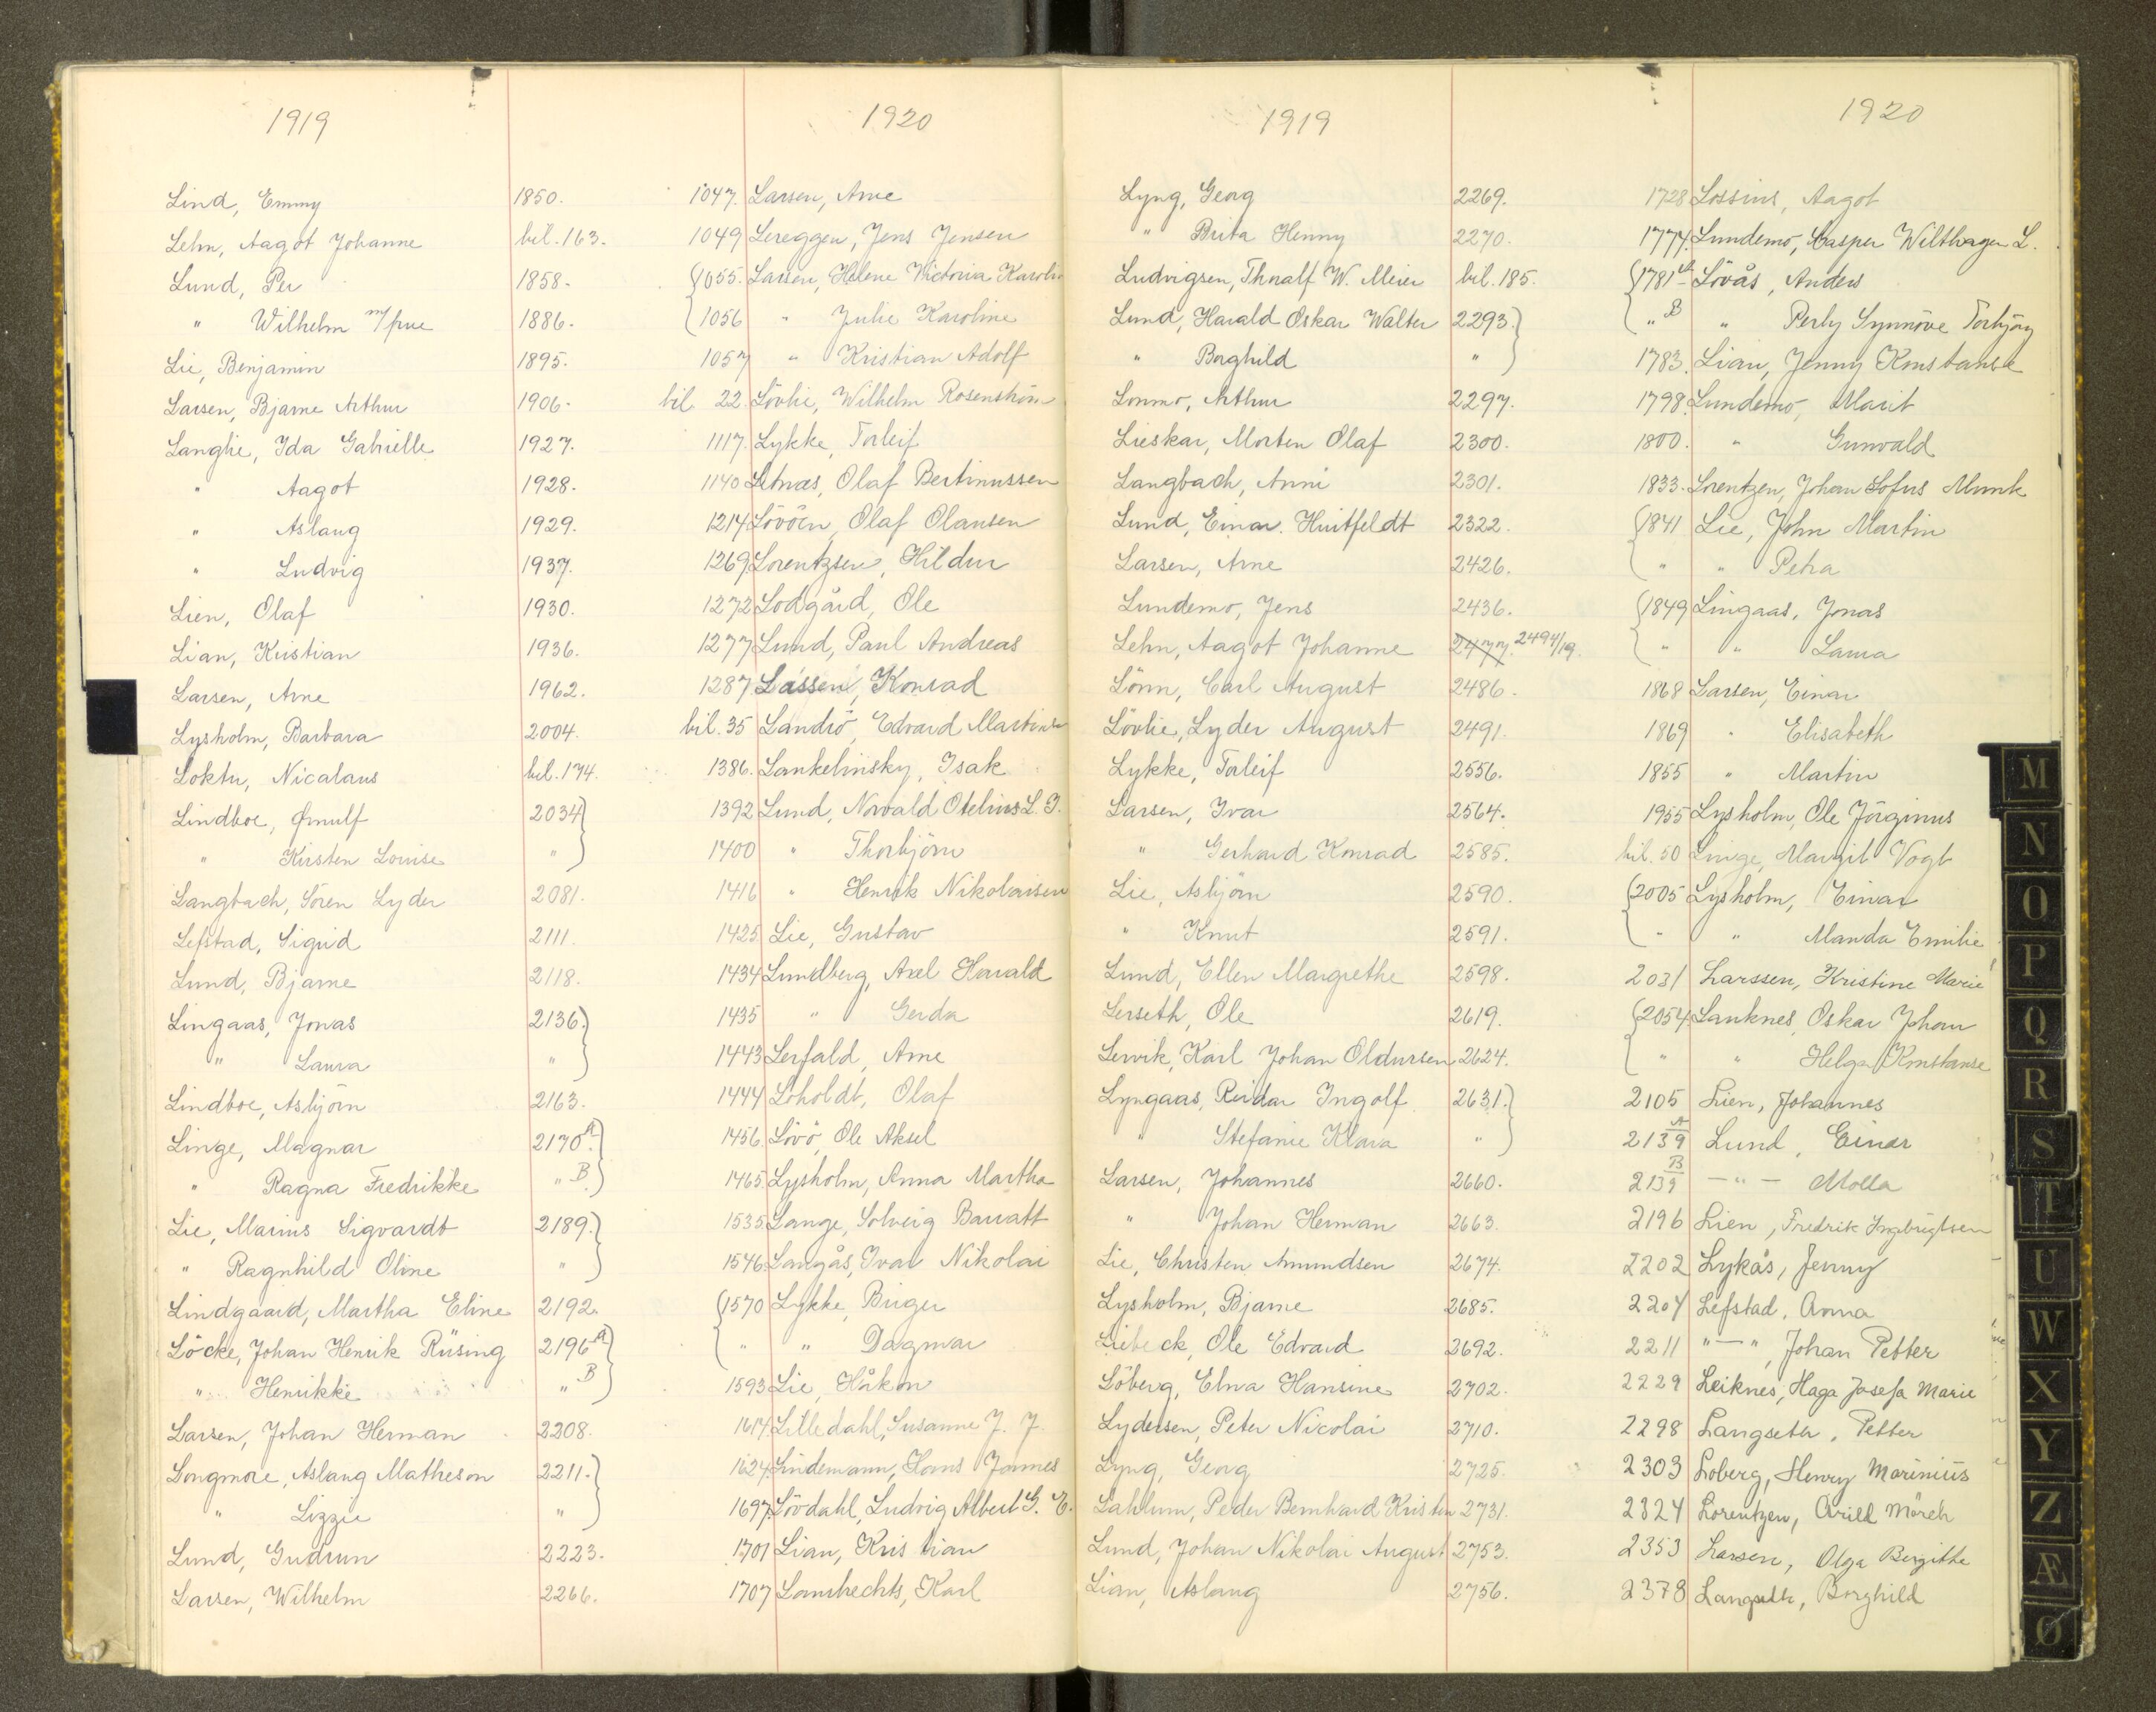 1919
Lind, Emmy 1850.
Lehn, Aagot Johanne bil. 163.
Lund, Per 1858.
" Wilhelm m/frue 1886.
Lie, Benjamin 1895.
Larsen, Bjarne Arthur 1906.
Langlie, Ida Gabrielle 1927.
" Aagot 1928.
" Aslaug 1929.
" Ludvig 1937.
Lien, Olaf 1930.
Lian, Kristian 1936.
Larsen, Arne 1962.
Lysholm, Barbara 2004.
Loktu, Nicolaus bil. 174.
Lindboe, Ørnulf 2034
" Kirsten Louise "
Langbach, Sören Lyder 2081.
Lefstad, Sigrid 2111.
Lund, Bjarne 2118.
Lingaas, Jonas 2136.
" Laura "
Lindboe, Asbjörn 2163.
Linge, Magnar 2170 A.
" Ragna Fredrikke " B.
Lie, Marius Sigvardt 2189.
" Ragnhild Oline "
Lindgaard, Martha Eline 2192.
Löcke, Johan Henrik Rüsing 2196 A
" Henrikke " B
Larsen, Johan Herman 2208.
Longmore, Aslaug Matheson 2211.
" Lizzie "
Lund, Gudrun 2223.
Larsen, Wilhelm 2266.
1920
1047. Larsen, Arne
1049 Lereggen, Jens Jensen
1055. Larsen, Helene Victoria Karoline
1056 " Julie Karoline
1057 " Kristian Adolf
bil 22. Lövlie, Wilhelm Rosenström
1117. Lykke, Torleif
1140 Letnæs, Olaf Bertinussen
1214 Lövöen, Olaf Olausen
1269 Lorentzsen, Hildur
1272 Lodgård, Ole
1277 Lund, Paul Andreas
1287 Lassen, Konrad
bil. 35 Landrö, Edvard Martinsen
1386. Lankelinsky, Isak
1392 Lund, Norvald Otelius L. G.
1400 " Thorbjörn
1416 " Henrik Nikolaisen
1425 Lie, Gustav
1434 Lundberg, Axel Harald
1435 " Gerda
1443 Lerfald, Arne
1444 Loholdt, Olaf
1456 Lövö, Ole Aksel
1465 Lysholm, Anna Martha
1535 Lange, Solveig Barratt
1546 Langås, Ivar Nikolai
1570 Lykke, Birger
" " Dagmar
1593 Lie, Håkon
1614 Lilledahl, Susanne J. J.
1624 Lindemann, Hans Jannes
1697 Lövdahl, Ludvig Albert G. E.
1701 Lian, Kristian
1707 Lambrechts, Karl
1919
Lyng, Georg 2269.
" Brita Henny 2270.
Ludvigsen, Thoralf W. Meier bil. 185.
Lund, Harald Oskar Walter 2293.
" Borghild "
Lonmo, Arthur 2297.
Lieskar, Morten Olaf 2300.
Langbach, Anni 2301.
Lund, Einar Huitfeldt 2322.
Larsen, Arne 2426.
Lundemo, Jens 2436.
Lehn, Aagot Johanne 2477. 2494/19.
Lönn, Carl August 2486.
Lövlie, Lyder August 2491.
Lykke, Torleif 2556.
Larsen, Ivar 2564.
" Gerhard Konrad 2585.
Lie, Asbjörn 2590.
" Knut 2591.
Lund, Ellen Margrethe 2598.
Lerseth, Ole 2619.
Lervik, Karl Johan Oldursen 2624.
Lyngaas, Reidar Ingolf 2631.
" Stefanie Klara "
Larsen, Johannes 2660.
" Johan Herman 2663.
Lie, Christen Amundsen 2674.
Lysholm, Bjarne 2685.
Liebeck, Ole Edvard 2692.
Löberg, Elna Hansine 2702.
Lydersen, Peter Nicolai 2710.
Lyng, Georg 2725.
Lahlum, Peder Bernhard Kristen 2731.
Lund, Johan Nikolai August 2753.
Lian, Aslaug 2756.
1920
1728 Lossius, Aagot
1774. Lundemo, Casper Wilthagen L.
1781 A Lövås, Anders
" B " Perly Synnöve Torbjörg
1783. Lian, Jenny Konstanse
1798. Lundemo, Marit
1800. " Gunvald
1833. Lorentzen, Johan Sofus Munk
1841 Lie, John Martin
" " Petra
1849 Lingaas, Jonas
" " Laura
1868 Larsen, Einar
1869 " Elisabeth
1855 " Martin
1955 Lysholm, Ole Jörginus
bil. 50 Linge, Margit Vogt
2005 Lysholm, Einar
" " Manda Emilie
2031 Larssen, Kristine Marie
2054 Lanknes, Oskar Johan
" " Helga Konstanse
2105 Lien, Johannes
2139 A Lund, Einar
2139 B — " — Molla
2196 Lien, Fredrik Ingbrigtsen
2202 Lykås, Jenny
2204 Lefstad, Anna
2211 " — ", Johan Petter
2229 Leiknes, Haga Josefa Marie
2298 Langseter, Petter
2303 Loberg, Henry Marinius
2324 Lorentzen, Arild Mörch
2353 Larsen, Olga Bergithe
2378 Langseth, Borghild
M
N
O
P
Q
R
S
T
U
W
X
Y
Z
Æ
Ø